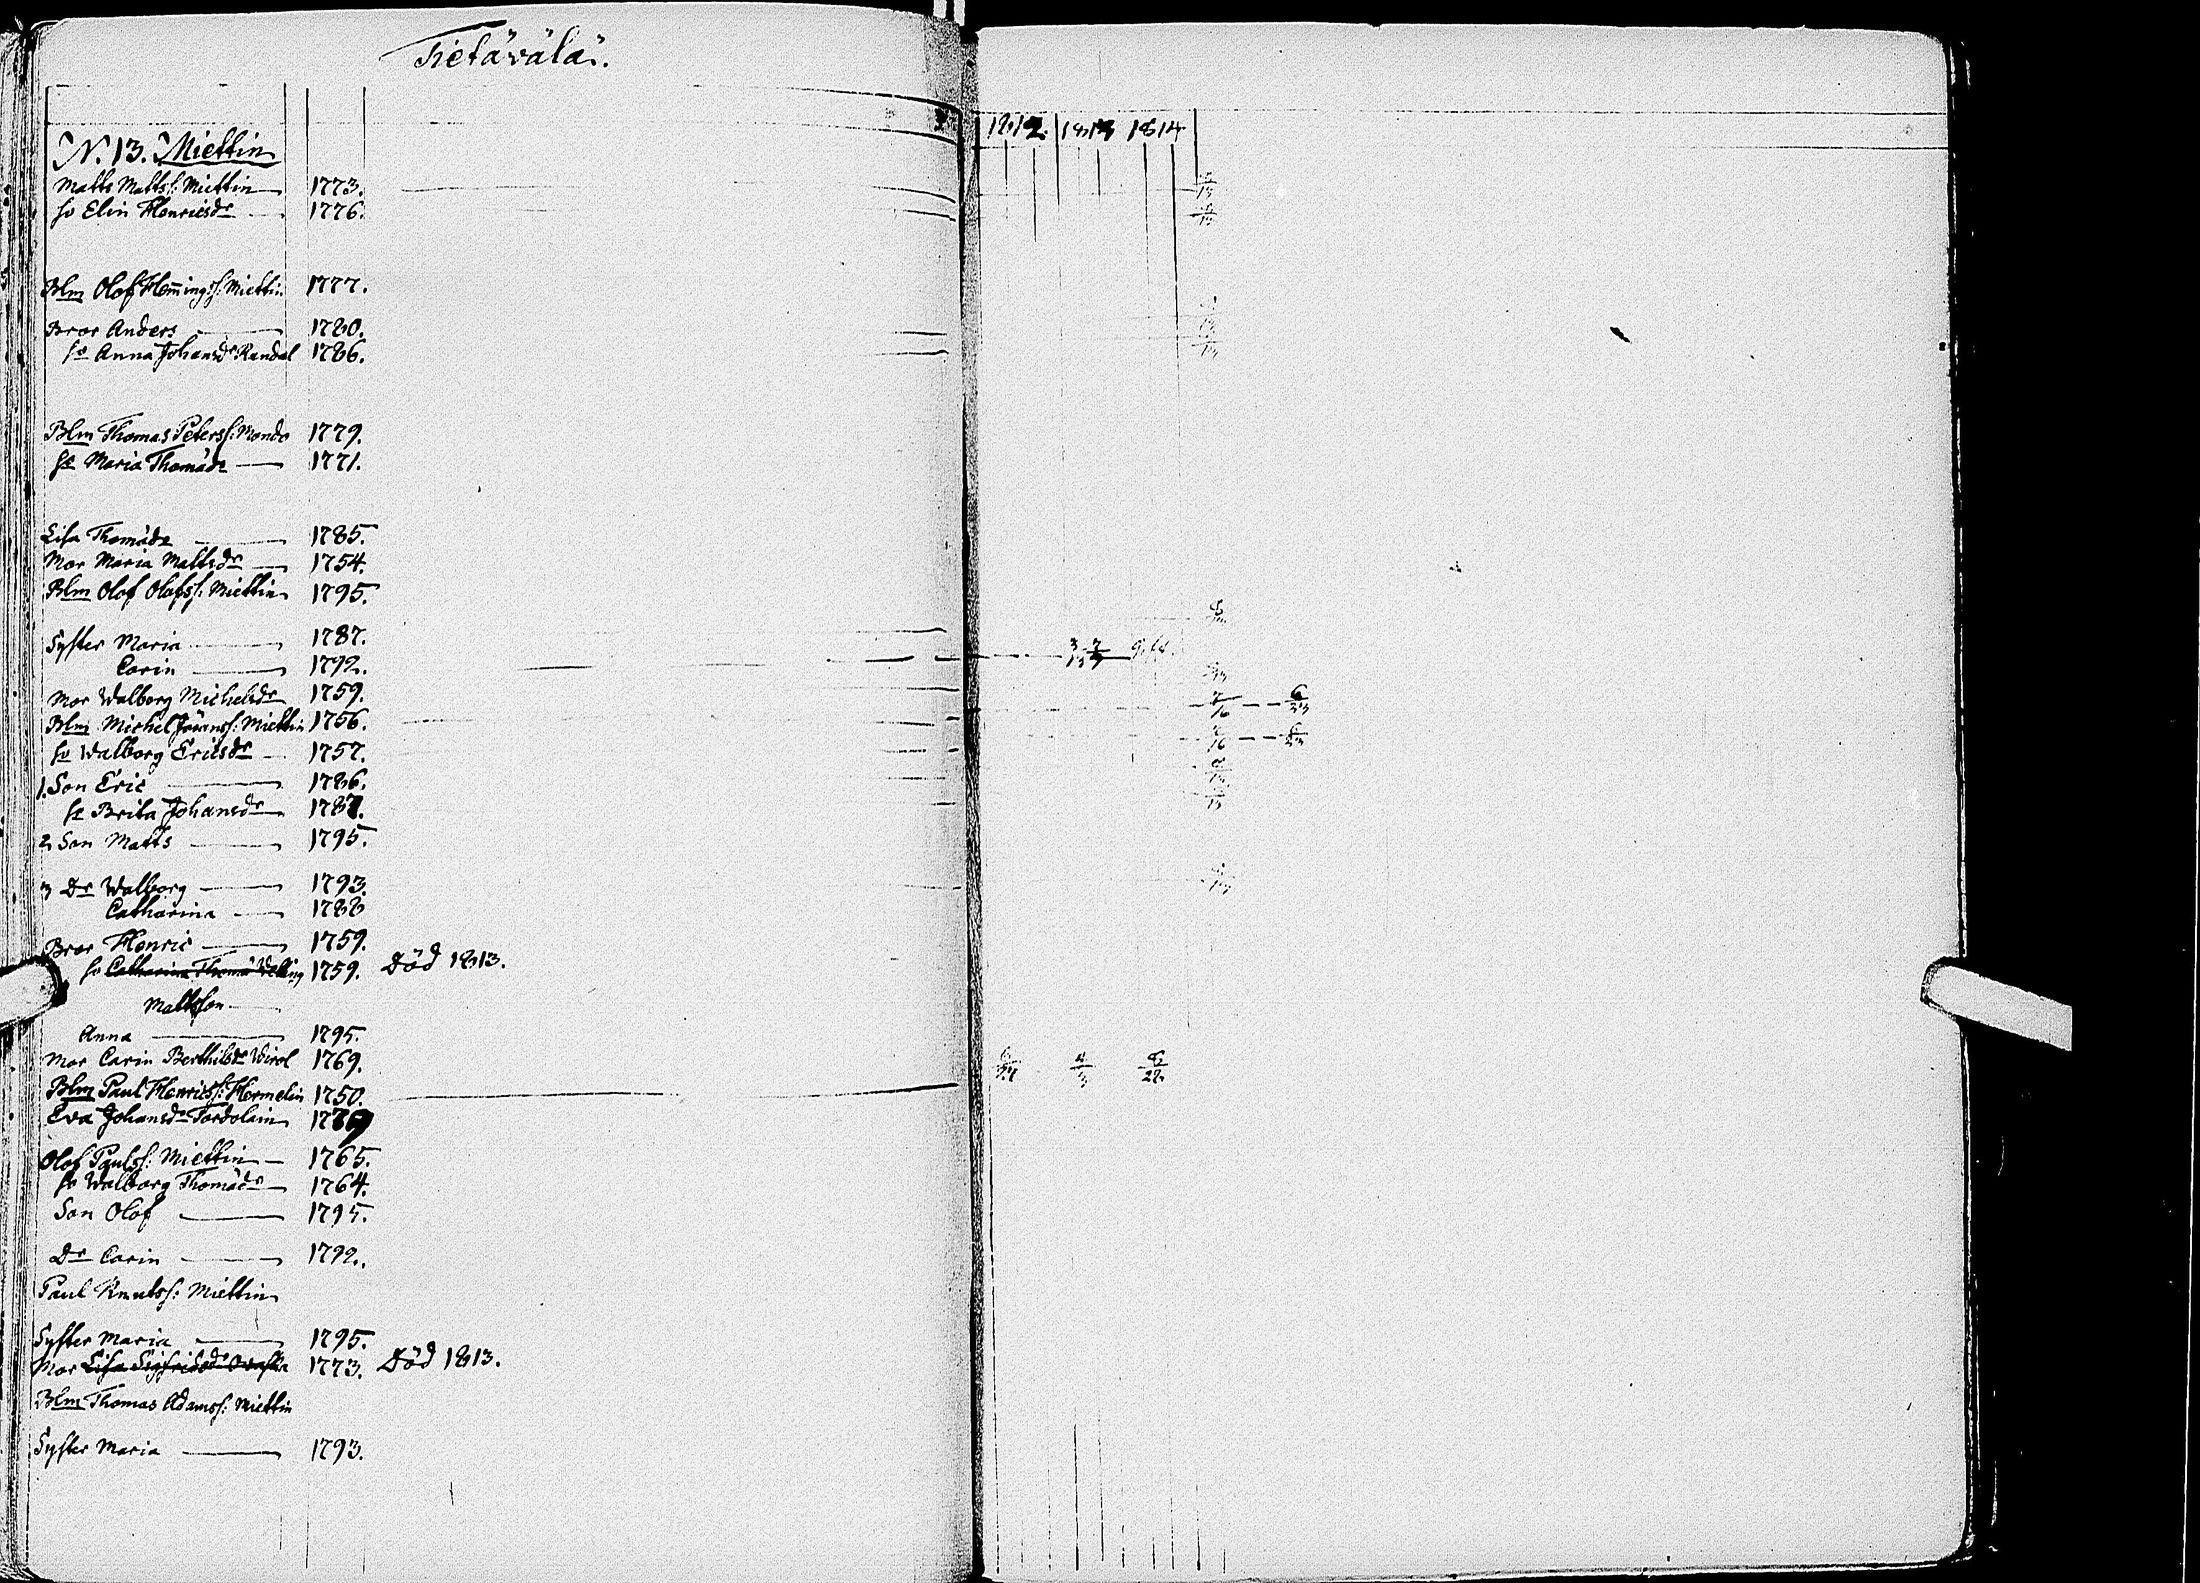 Tietäwälä.
1812 1813 1814
N. 13. Miettin
Matts Mattss: Miettin 1773.
hu Elin Henricsdr 1776.
Blm Olof Hemingss: Miettin 1777.
Bror Anders 1780.
hu Anna Johansdr Kandal 1786.
Blm Thomas Peterss: Mondo 1779.
hu Maria Thomädr 1771.
Lisa Thomädr 1785.
Mor Maria Mattsdr 1754.
Blm Olof Olofss: Miettin 1795.
Syster Maria 1787.
Carin 1792.
Mor Walborg Michelsdr 1759.
Blm Michel Jöranss: Miettin 1756.
hu Walborg Ericsdr 1757.
1. Son Eric 1786.
hu Brita Johansdr 1787.
2 Son Matts 1795.
3 Dr Walborg 1793.
Catharina 1788
Bror Henric 1759.
hu Catharina Thomä 1759. Död 1813.
Mattsson
Anna 1795.
Mor Carin Berthilsdr Wirol 1769.
Blm Paul Henricss: Hermelin 1750.
Eva Johansdr Tordolain 1779
Olof Paulss: Miettin 1765.
hu Walborg Thomädr 1764.
Son Olof 1795.
Dr Carin 1792.
Paul Knutss: Miettin
Syster Maria 1795.
Mor Lisa Sigfridsdr 1773. Död 1813.
Blm Thomas Adamss: Miettin
Syster Maria 1793.